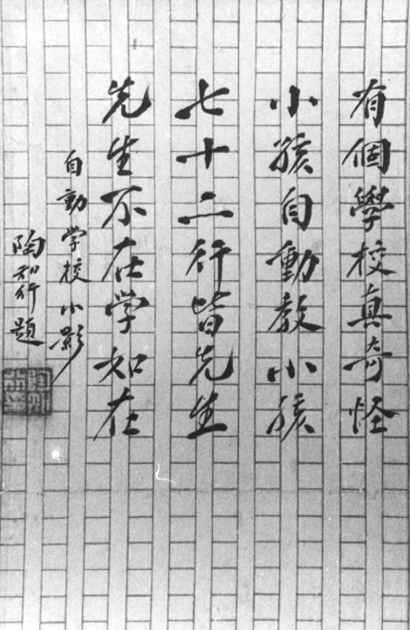 有個學校真奇怪
小孩自動教小孩
七十二行皆先生
先生不在学知在
自動学校小影
陶知行題